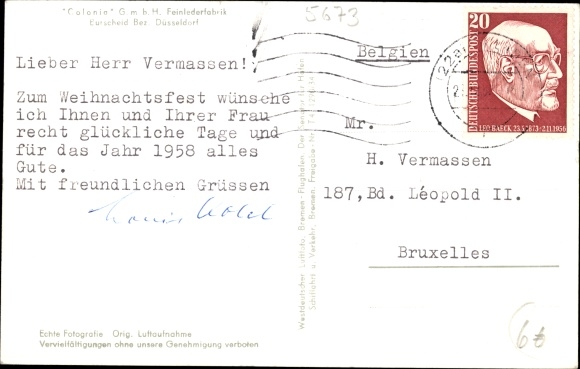 "Colonie" G.m.b.H. Feinlederfabrik
Eurscheid Bez: Düsseldorf
5673
Lieber Herr Vermassen!
Zum Weihnachtsfest wünsche
ich Ihnen und Ihrer Frau
recht glückliche Tage und
für das Jahr 1958 alles
Gute.
Mit freundlichen Grüssen
Echte Fotografie Orig. Luftaufnahme
Vervielfältigungen ohne unsere Genehmigung verboten
Westdeutscher Luftfoto, Bremen-Flughafen,
Schiffahrt u. Verkehr, Bremen, Freigabe-Nr.
Belgien
20
DEUTSCHE BUNDESPOST
LEO BAECK 23.5.1873-2.11.1956
Mr.
H. Vermassen
187,Bd. Léopold II.
Bruxelles
6